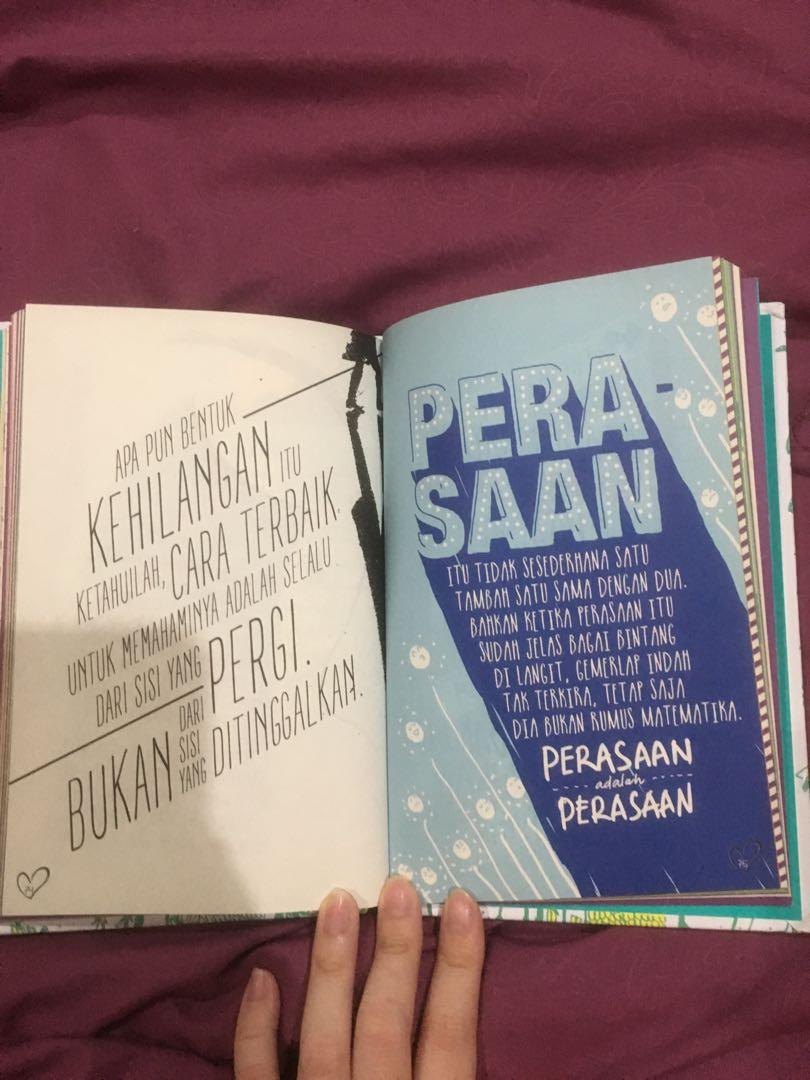 APA PUN BENTUK
KEHILANGAN ITU
KETAHUILAH, CARA TERBAIK
UNTUK MEMAHAMINYA ADALAH SELALU
DARI SISI YANG PERGI.
BUKAN DARI SISI YANG DITINGGALKAN.
PERA-
SAAN
ITU TIDAK SESEDERHANA SATU
TAMBAH SATU SAMA DENGAN DUA.
BAHKAN KETIKA PERASAAN ITU
SUDAH JELAS BAGAI BINTANG
DI LANGIT, GEMERLAP INDAH
TAK TERKIRA, TETAP SAJA
DIA BUKAN RUMUS MATEMATIKA.
PERASAAN
adalah
PERASAAN